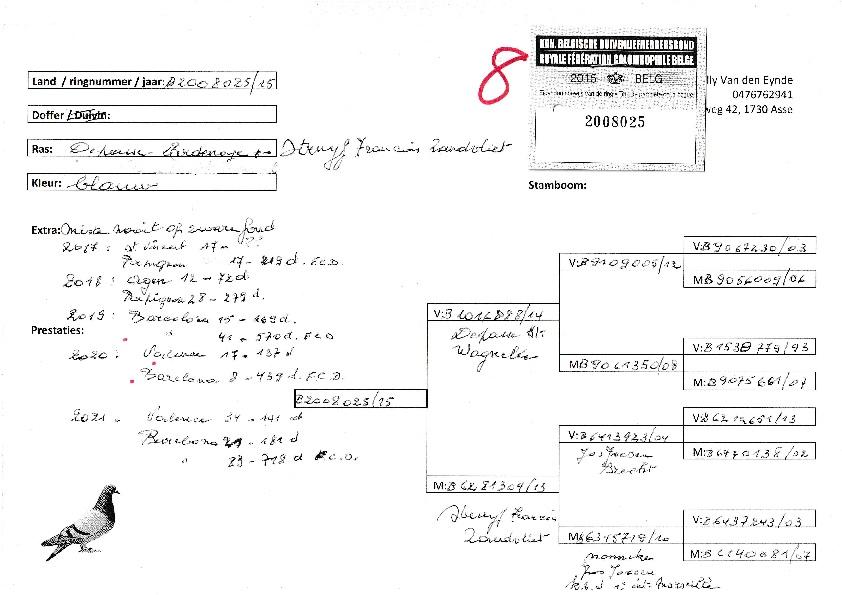 8
KON. BELGISCHE DUIVENLIEFHEBBERSBOND
ROYALE FÉDÉRATION COLOMBOPHILE BELGE
2015 BELG
2008025
lly Van den Eynde
0476762941
weg 42, 1730 Asse
Land / ringnummer / jaar: B2008025/15
Doffer / Duivin:
Ras: Francis Zandvliet
Kleur: blauw
Stamboom:
Extra: nooit op zware fond
2017: St Vincent 17 -
Perpignan 17 - 219 d. F.C.D.
2018: Agen 12 - 72 d
Perpignan 28 - 279 d.
2019: Barcelona 15 - 169 d.
" 41 - 570 d. F.C.D
Prestaties:
2020: Valence 17 - 137 d
Barcelona 8 - 439 d. F.C.D.
2021. Valence 34 - 141 d
Barcelona 29 - 181 d
" 23 - 718 d F.C.D.
B2008025/15
V:B 14
Wagnelée
M:B6281304/13
Francis
Zandvliet
V:B9109005/12
M:B9061350/08
V:B6413923/04
Jos Joosen
Brecht
M:B6315719/10
Jos Joosen
V:B9067230/03
M:B9056009/06
V:B 93
M:B9075661/07
V:B6219651/13
M:B6470138/02
V:B6437243/03
M:B6140081/07